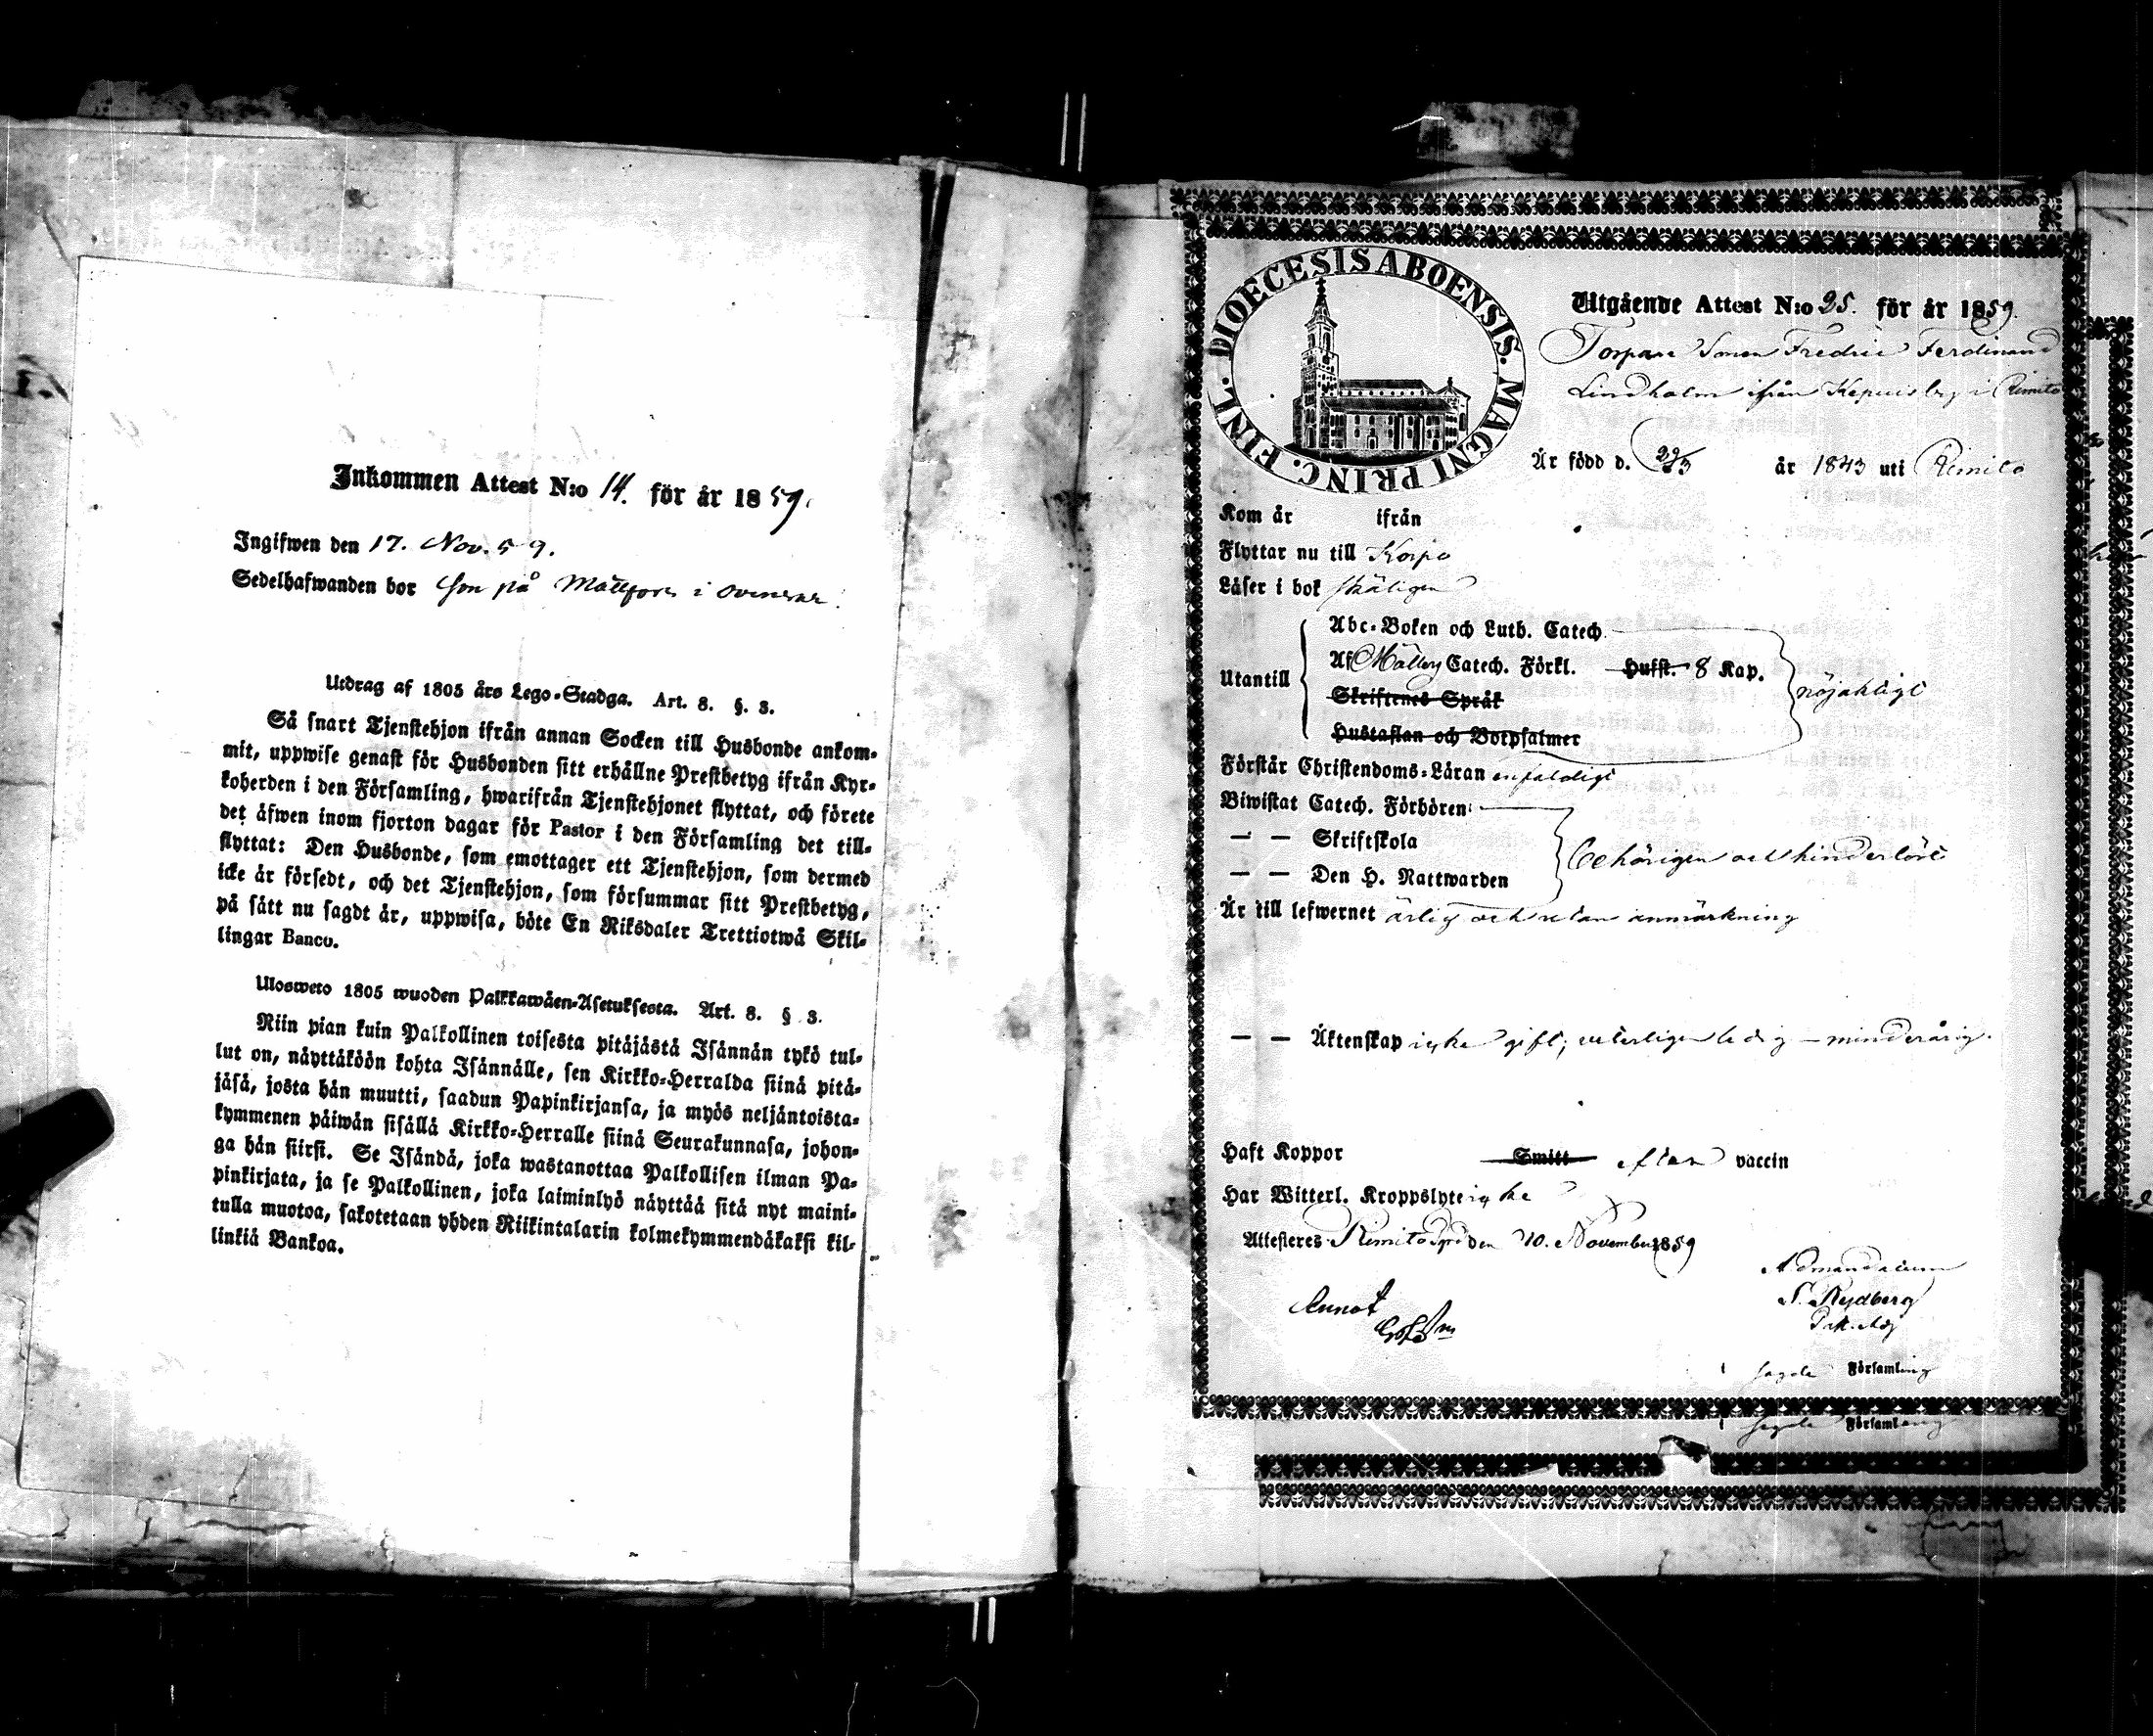 Inkommen Attest N:o 14. för år 1859.
Ingifwen den 17. Nov. 59.
Sedelhafwanden bor Son på i
Utdrag af 1805 års Lego-Stadga. Art. 8. §. 3.
Så snart Tjenstehjon ifrån annan Socken till Husbonde ankom-
mit, uppwise genast för Husbonden sitt erhållne Prestbetyg ifrån Kyr-
koherden i den Församling, hwarifrån Tjenstehjonet flyttat, och förete
det äfwen inom fjorton dagar för Pastor i den Församling det till-
flyttat: Den Husbonde, som emottager ett Tjenstehjon, som dermed
icke är försedt, och det Tjenstehjon, som försummar sitt Prestbetyg,
på sätt nu sagdt är, uppwisa, böte En Riksdaler Trettiotwå Skil-
lingar Banco.
Ulosweto 1805 wuoden Palkkawäen-Asetuksesta. Art. 8. § 3.
Niin pian kuin Palkollinen toisesta pitäjästä Isännän tykö tul-
lut on, näyttäköön kohta Isännälle, sen Kirkko-Herralda siinä pitä-
jäsä, josta hän muutti, saadun Papinkirjansa, ja myös neljäntoista-
kymmenen päiwän sisällä Kirkko-Herralle siinä Seurakunnasa, johon-
ga hän siirsi. Se Isändä, joka wastanottaa Palkollisen ilman Pa-
pinkirjata, ja se Palkollinen, joka laiminlyö näyttää sitä nyt maini-
tulla muotoa, sakotetaan yhden Riikintalarin kolmekymmendäkaksi kil-
linkiä Bankoa.
DIOECESIS ABOENSIS. MAGNI PRINC. FINL.
Utgående Attest N:o 25. för år 1859.
Torpare Sonen Fredric Ferdinand
Lindholm ifrån i Rimito
År född d. år 1843 uti Rimito
Kom år ifrån
Flyttar nu till Korpo
Läser i bok skäligen
Utantill
Abc-Boken och Luth. Catech.
Af Catech. Förkl. Hufst. 8 Kap.
Skriftenes Språk
Hustaflan och Botpsalmer
nöjaktigt
Förstår Christendoms-Läran enfaldigt
Biwistat Catech. Förhören
— — Skriftskola
— — Den H. Nattwarden
behörigen och hinderlöst
Är till lefwernet ärlig och utan anmärkning
— — Äktenskap icke gift, ledig – minderårig.
Haft Koppor Smitt efter vaccin
Har Witterl. Kroppslyte icke
Attesteres Rimito den 10. November 1859
Ad mandatum
S. Rydberg
Annot
i sagde Församling
i sagde Församling